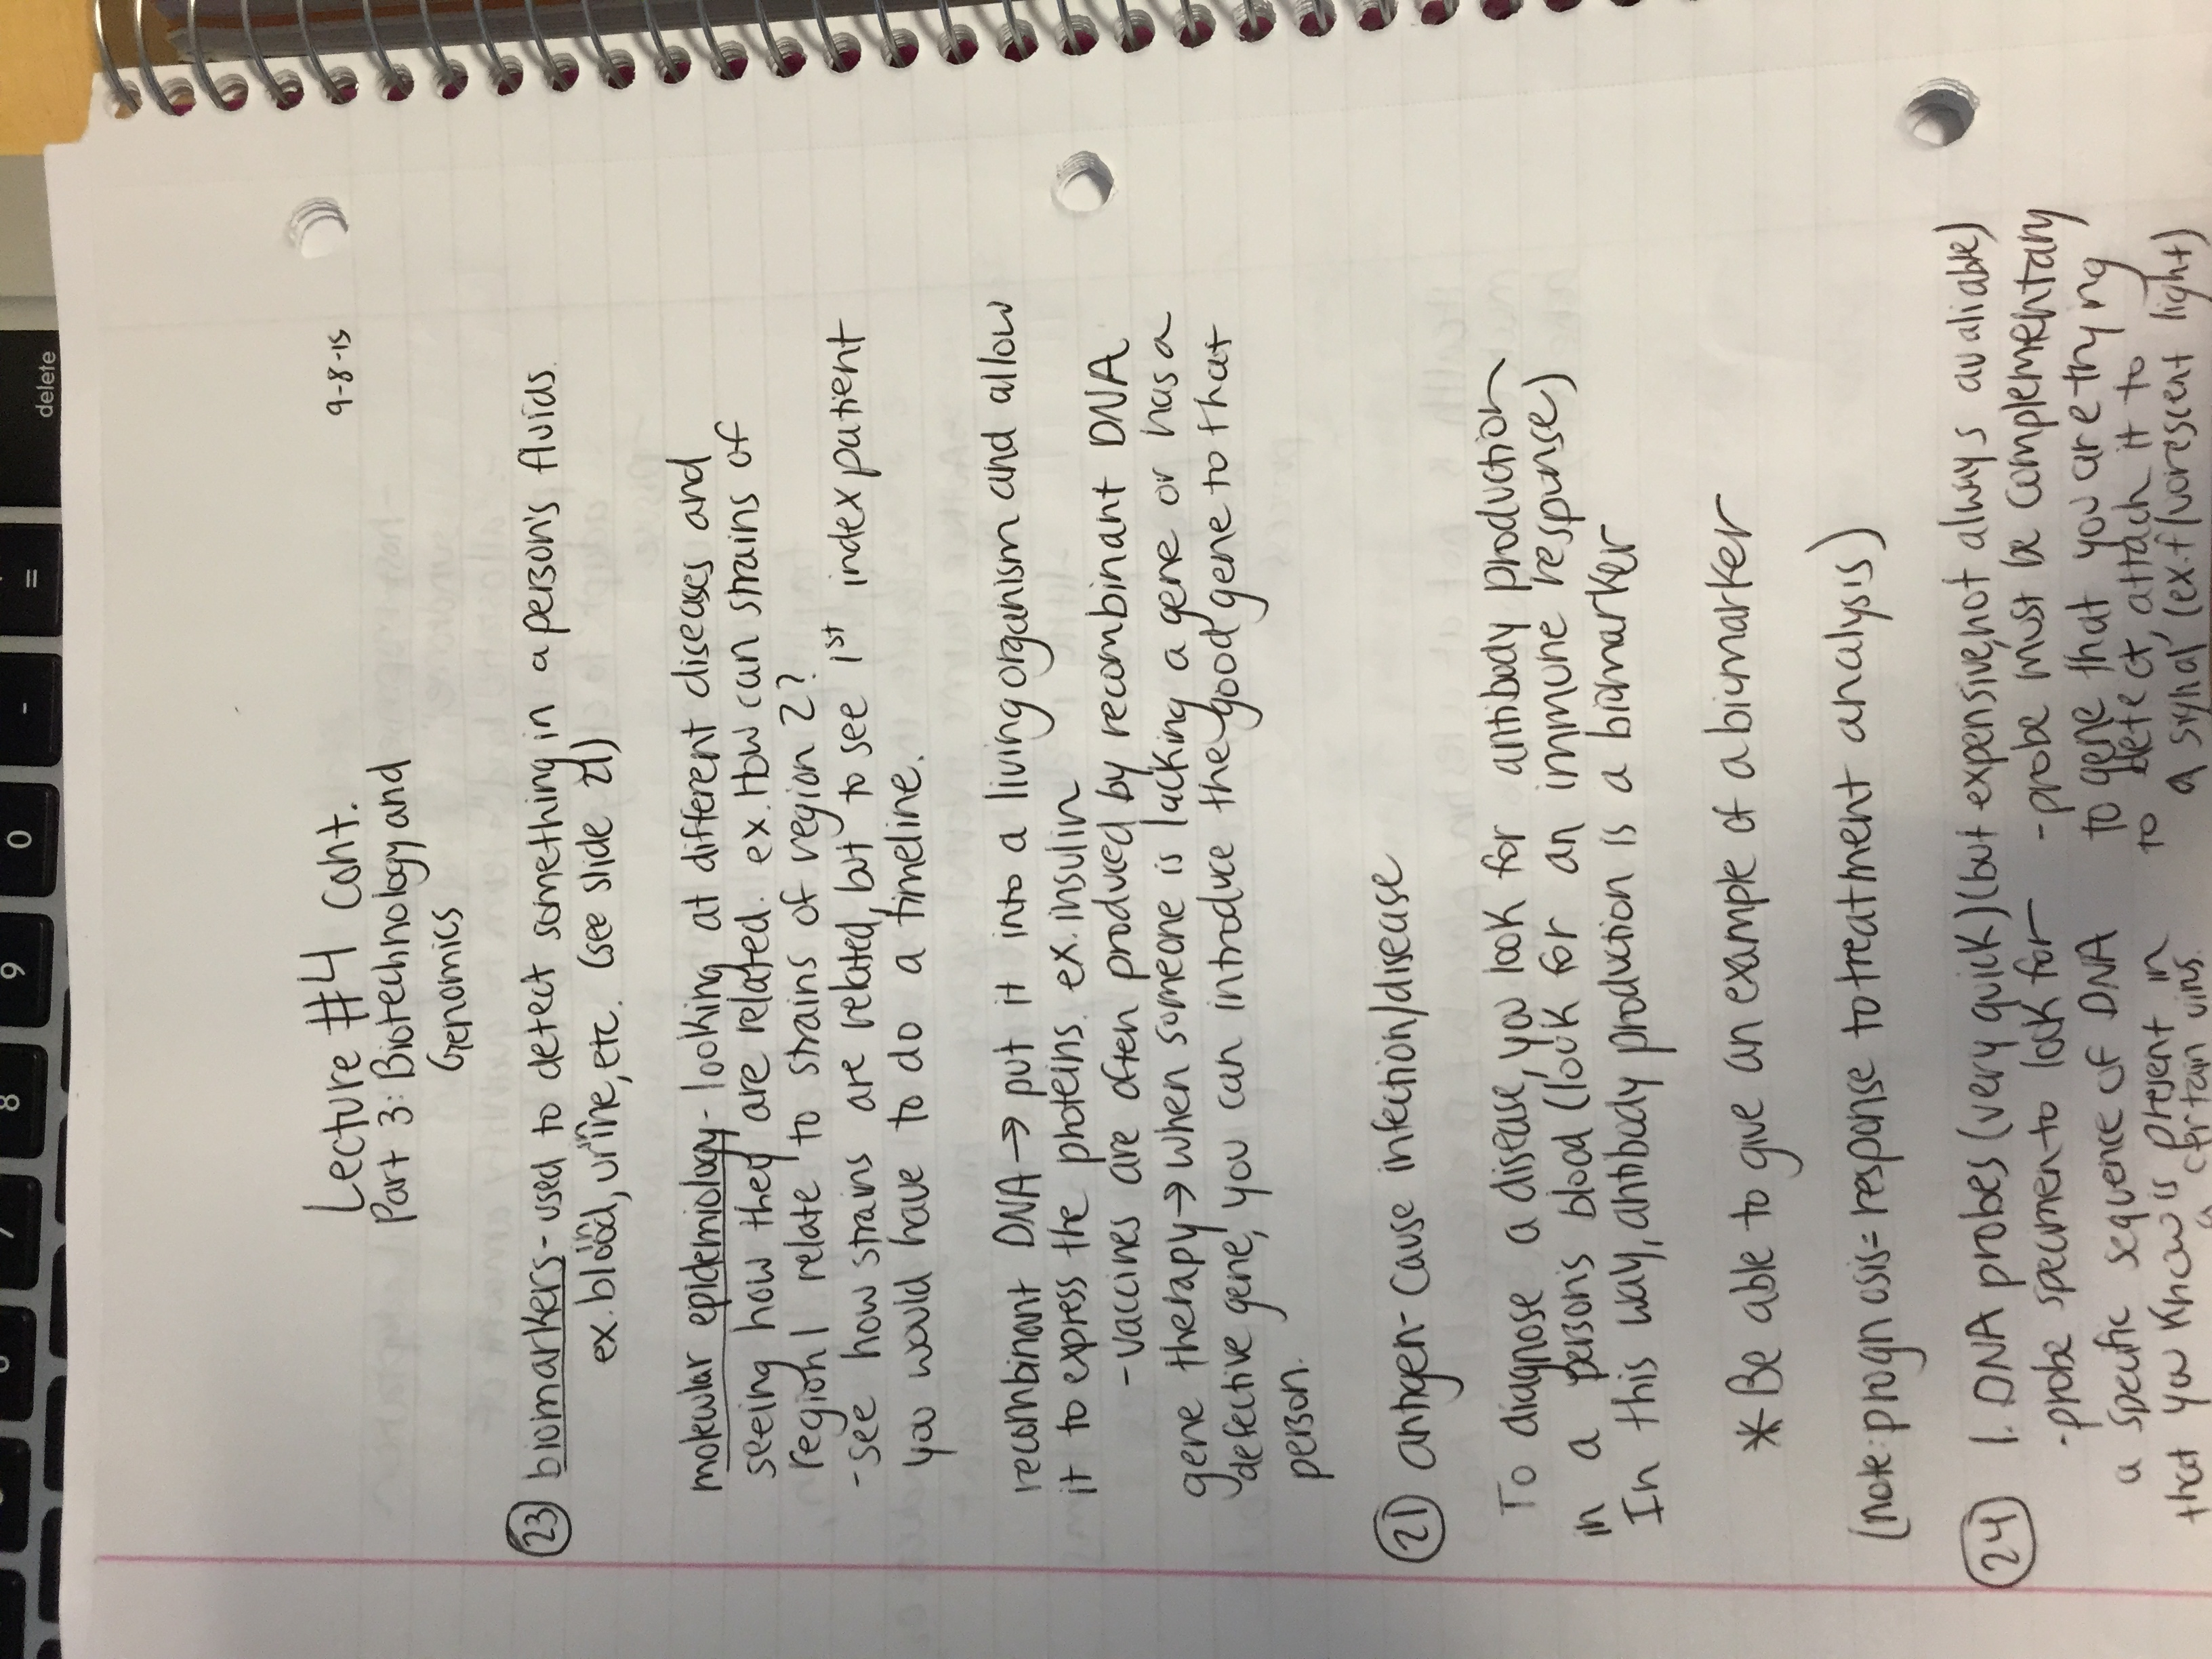 Lecture #4 cont.
9-8-15
Part 3: Biotechnology and
Genomics
(23) biomarkers - used to detect something in a person's fluids.
ex. blood, urine, etc. (see slide 21)
molecular epidemiology - looking at different diseases and
seeing how they are related. ex. How can strains of
region 1 relate to strains of region 2?
- see how strains are related, but to see 1st index patient
you would have to do a timeline.
recombinant DNA → put it into a living organism and allow
it to express the proteins. ex. insulin
- vaccines are often produced by recombinant DNA
gene therapy → when someone is lacking a gene or has a
defective gene, you can introduce the good gene to that
person.
(21) antigen - cause infection/disease
To diagnose a disease, you look for antibody production
in a person's blood (look for an immune response)
In this way, antibody production is a biomarker
* Be able to give an example of a biomarker
(note: prognosis = response to treatment analysis)
(24) 1. DNA probes (very quick) (but expensive, not always avaliable)
- probe specimen to look for
a specific sequence of DNA
that you know is present in
a certain virus.
- probe must be complementary
to gene that you are trying
to detect, attach it to
a signal (ex. fluorescent light)
delete
=
-
0
9
8
7